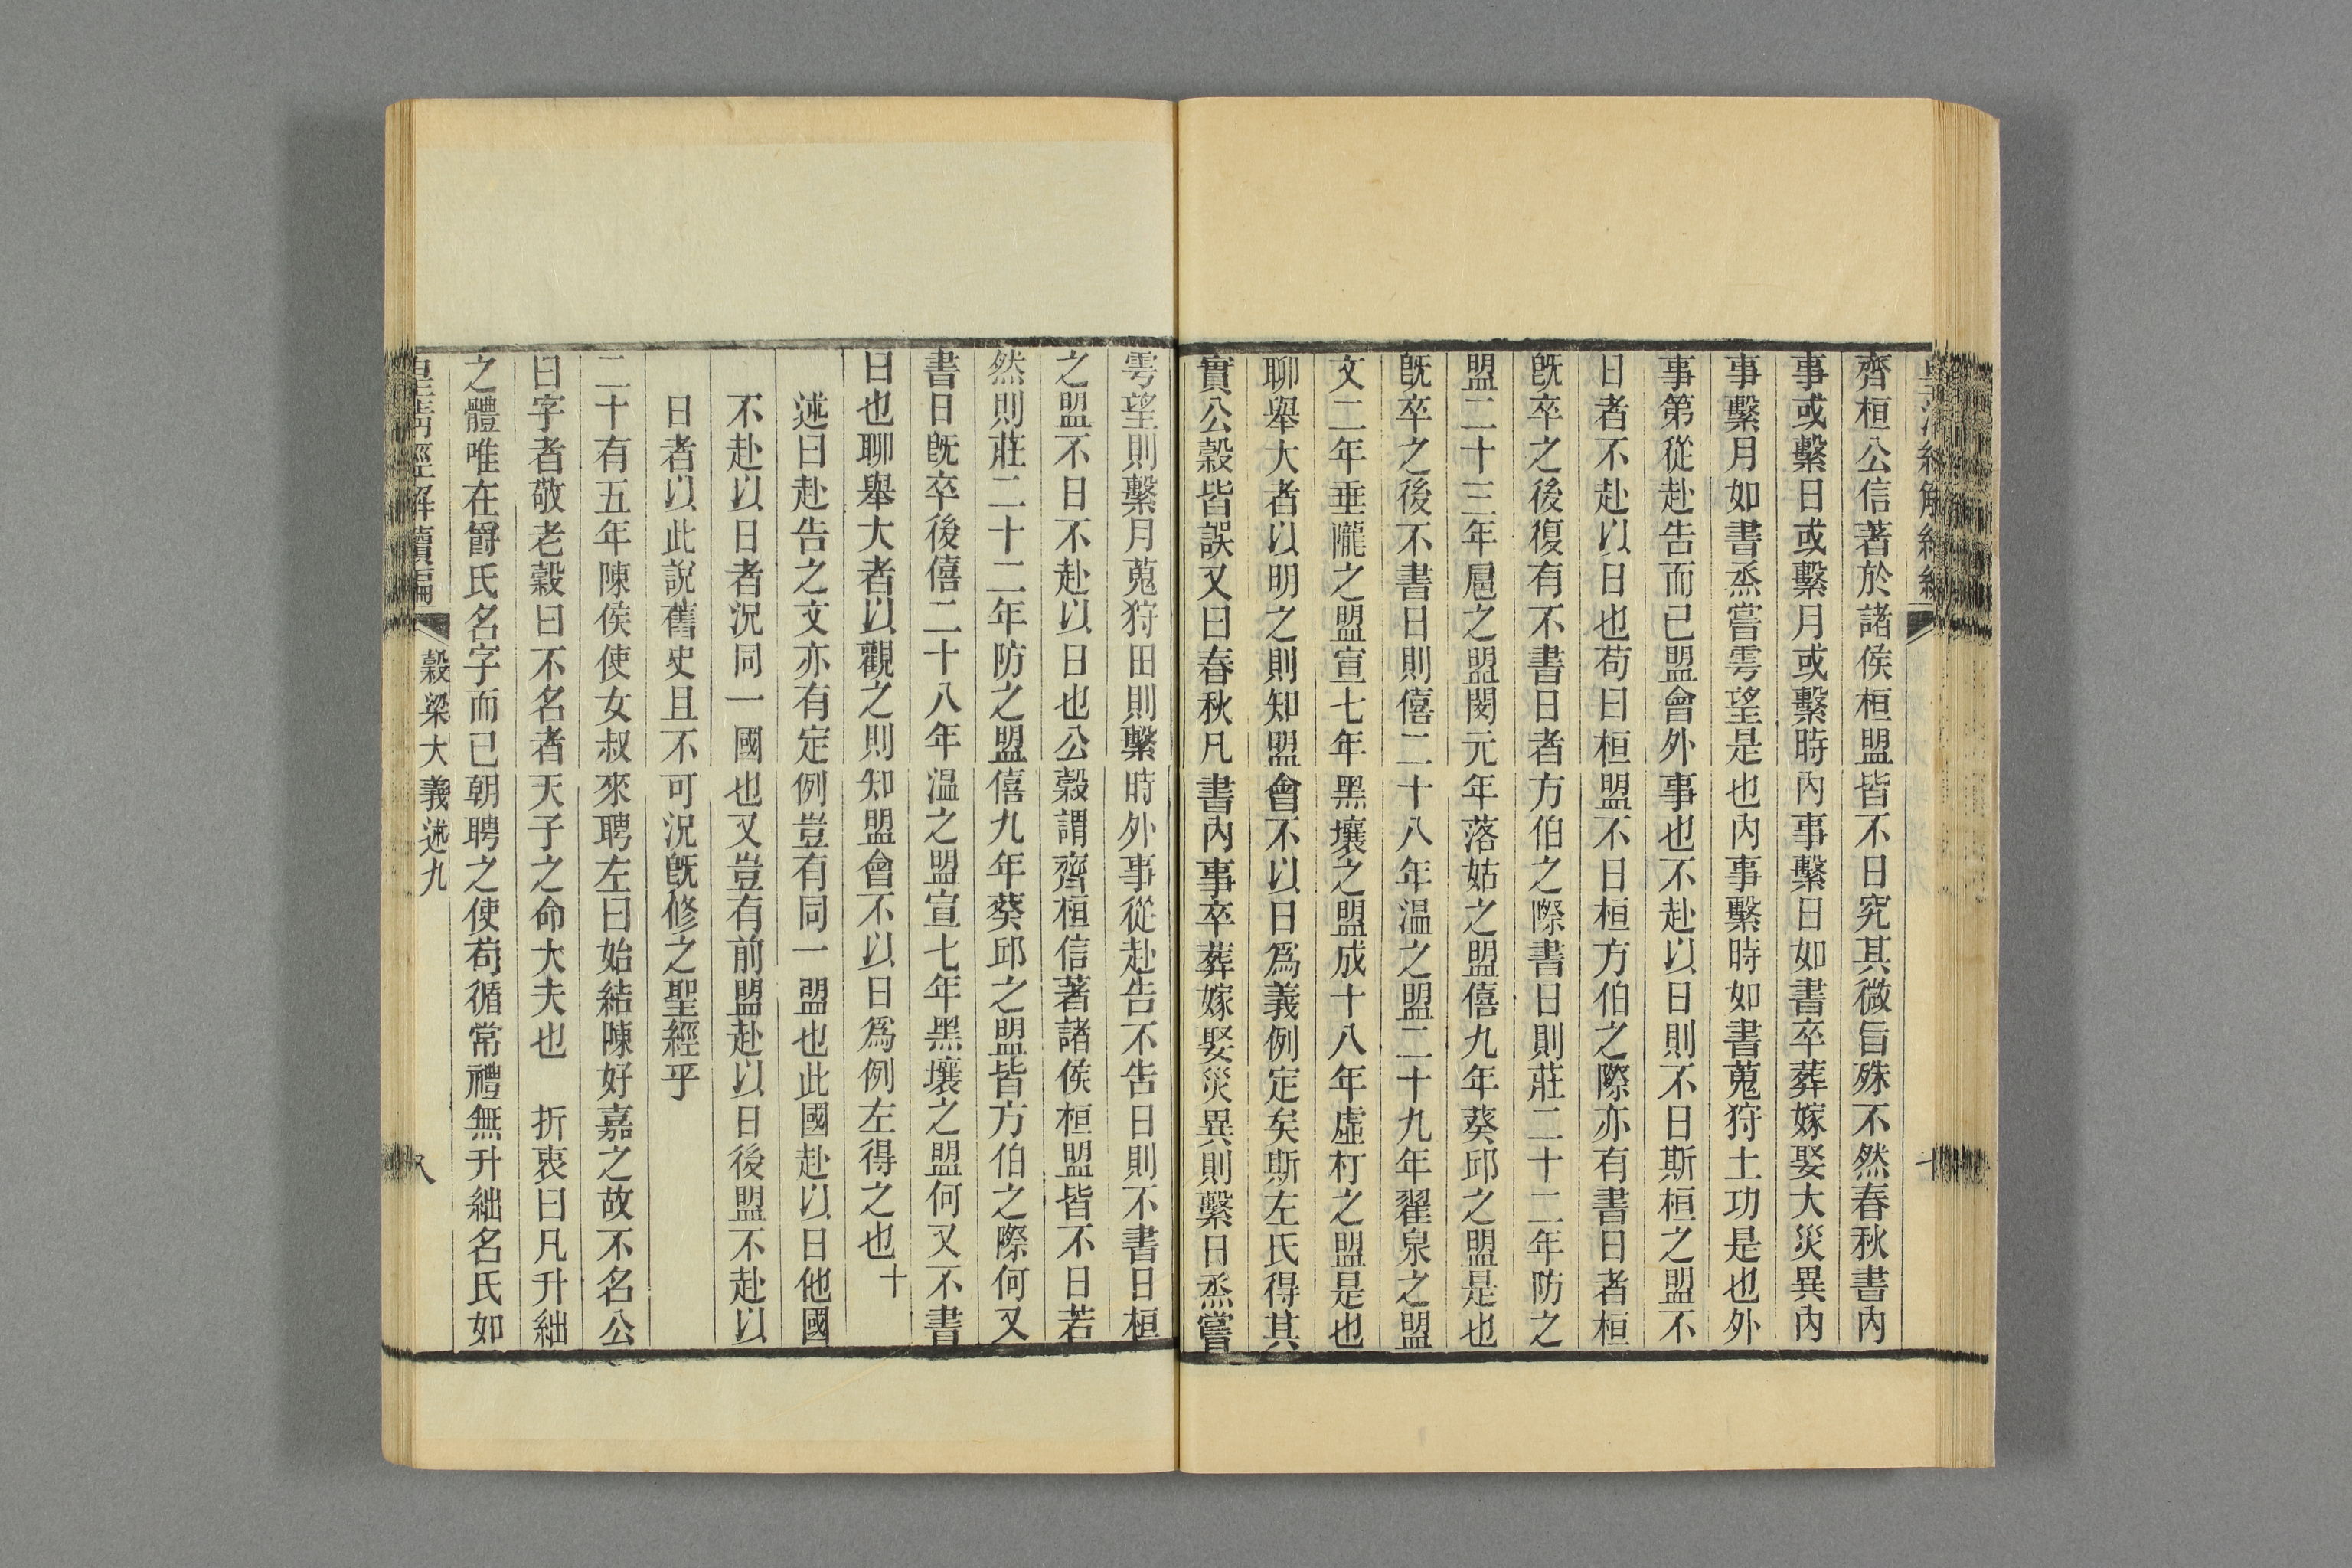 齊桓公信著於諸侯桓盟皆不日究其微旨殊不然春秋書內
事或繫日或繫月或繫時內事繫日如書卒葬嫁娶大災異內
事繫月如書烝嘗雩望是也內事繫時如書蒐狩土功是也外
事第從赴告而已盟會外事也不赴以日則不日斯桓之盟不
日者不赴以日也苟曰桓盟不日桓方伯之際亦有書日者桓
旣卒之後復有不書日者方伯之際書日則莊二十二年防之
盟二十三年扈之盟閔元年落姑之盟僖九年葵邱之盟是也
旣卒之後不書日則僖二十八年温之盟二十九年翟泉之盟
文二年垂隴之盟宣七年黑壤之盟成十八年虛朾之盟是也
聊舉大者以明之則知盟會不以日爲義例定矣斯左氏得其
實公穀皆誤又曰春秋凡書內事卒葬嫁娶災異則繫日烝嘗
雩望則繫月蒐狩田則繫時外事從赴告不告日則不書日桓
之盟不日不赴以日也公穀謂齊桓信著諸侯桓盟皆不日若
然則莊二十二年防之盟僖九年葵邱之盟皆方伯之際何又
書日旣卒後僖二十八年温之盟宣七年黑壤之盟何又不書
日也聊舉大者以觀之則知盟會不以日爲例左得之也 十
述曰赴告之文亦有定例豈有同一盟也此國赴以日他國
不赴以日者況同一國也又豈有前盟赴以日後盟不赴以
日者以此說舊史且不可況旣修之聖經乎
二十有五年陳侯使女叔來聘左曰始結陳好嘉之故不名公
曰字者敬老穀曰不名者天子之命大夫也 折衷曰凡升絀
之體唯在爵氏名字而已朝聘之使苟循常禮無升絀名氏如
皇淸經解續編 穀梁大義述九 八